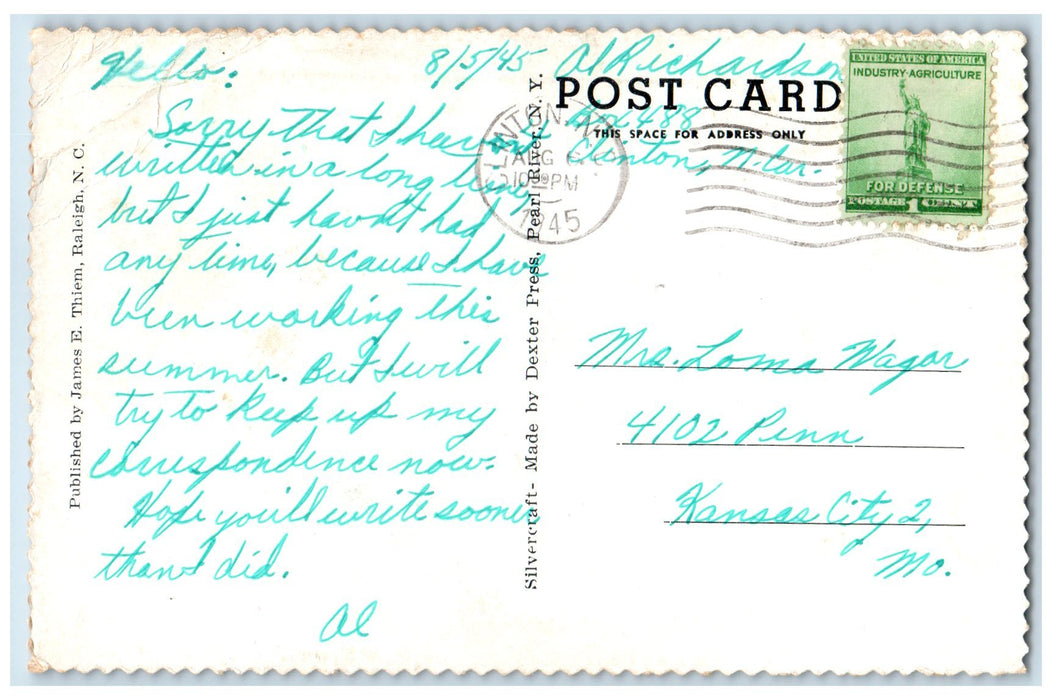 Hello:
8/5/45
Sorry that I haven't
written in a long time,
but I just haven't had
any time, because I have
been working this
summer. But I will
try to keep up my
correspondence now.
Hope you'll write sooner
than I did.
Al
Published by James E. Thiem, Raleigh, N. C.
Silvercraft- Made by Dexter Press, Pearl River, N. Y.
Al Richardson
POST CARD
488
THIS SPACE FOR ADDRESS ONLY
Clinton, N. Car.
NTON, N.
AUG 6
PM
1945
UNITED STATES OF AMERICA
INDUSTRY-AGRICULTURE
FOR DEFENSE
POSTAGE 1 CENT
Mrs. Loma Wagar
4102 Penn
Kansas City 2,
Mo.